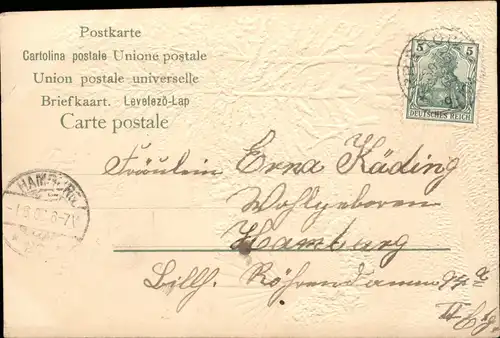 Postkarte
Cartolina postale Unione postale
Union postale universelle
Briefkaart. Levelezō-Lap
Carte postale
5 5
DEUTSCHES REICH
HAMBURG
Fräulein Erna Käding
Wohlgeboren
Hamburg
Billh. Röhrendamm
II Etg.